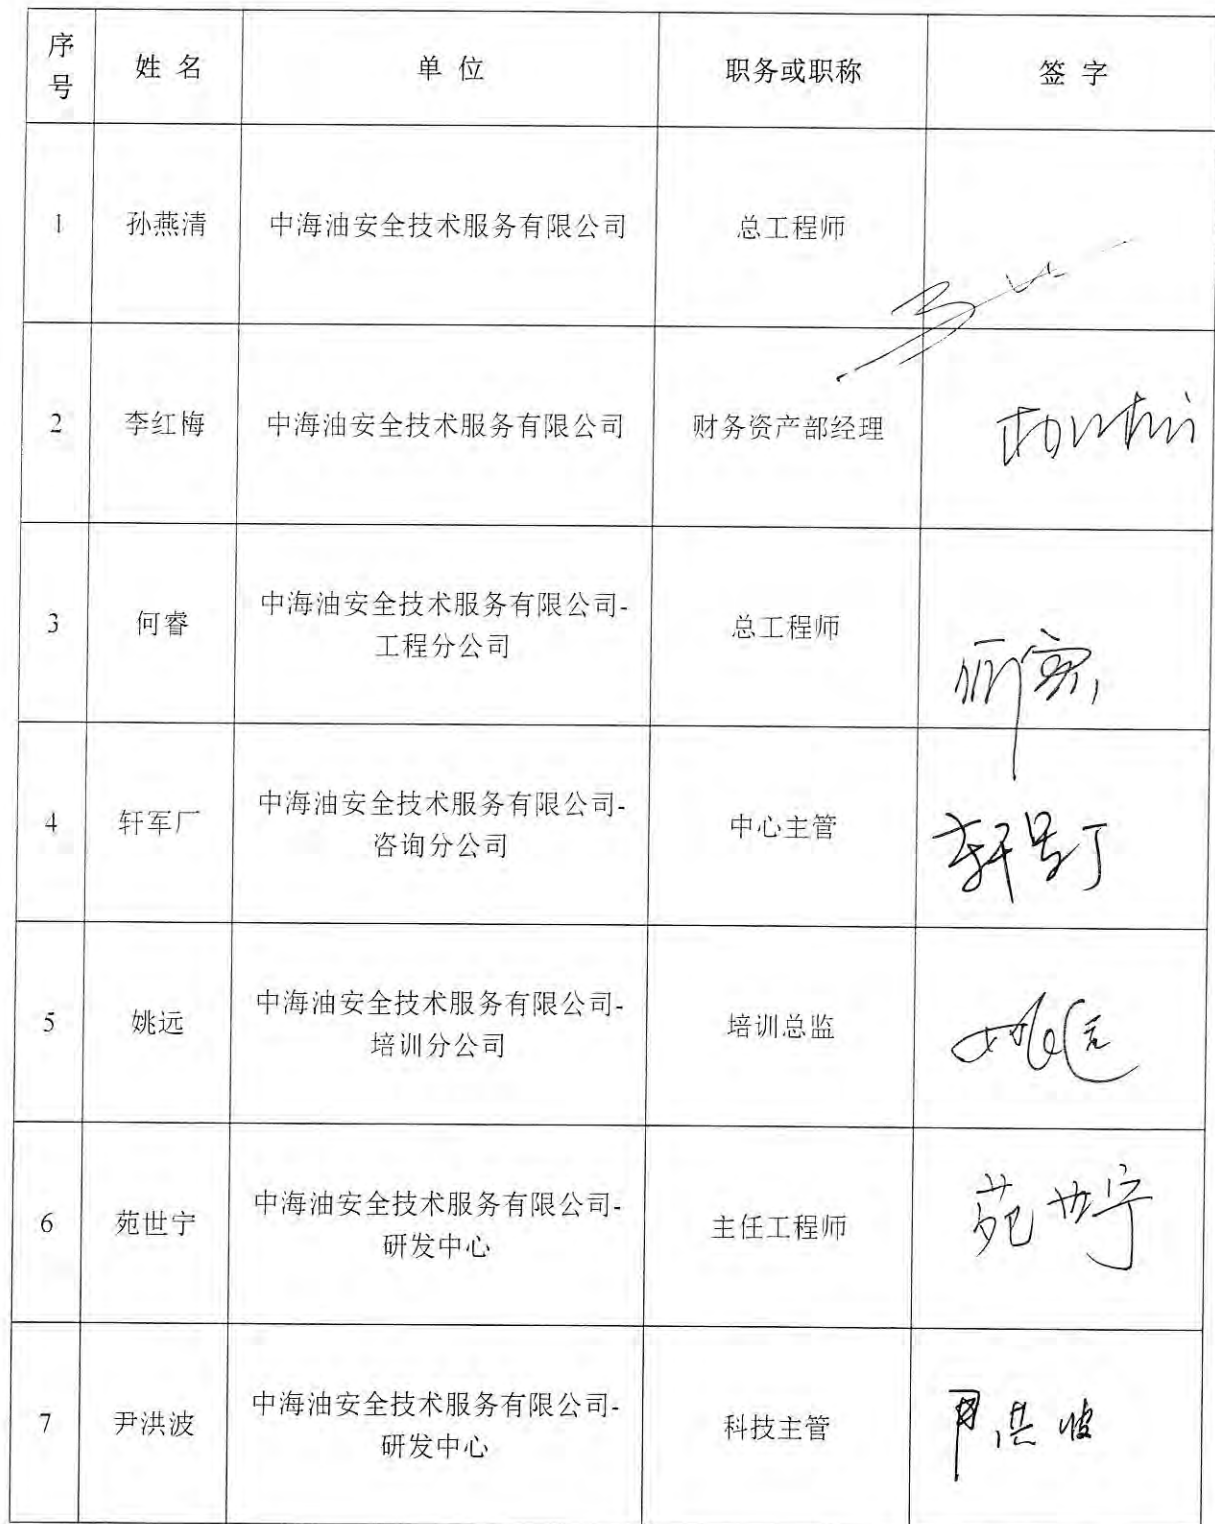 序号 姓 名 单 位 职务或职称 签 字
1 孙燕清 中海油安全技术服务有限公司 总工程师
2 李红梅 中海油安全技术服务有限公司 财务资产部经理
3 何睿 中海油安全技术服务有限公司-
工程分公司 总工程师
4 轩军厂 中海油安全技术服务有限公司-
咨询分公司 中心主管
5 姚远 中海油安全技术服务有限公司-
培训分公司 培训总监 姚远
6 苑世宁 中海油安全技术服务有限公司-
研发中心 主任工程师 苑世宁
7 尹洪波 中海油安全技术服务有限公司-
研发中心 科技主管 尹洪波